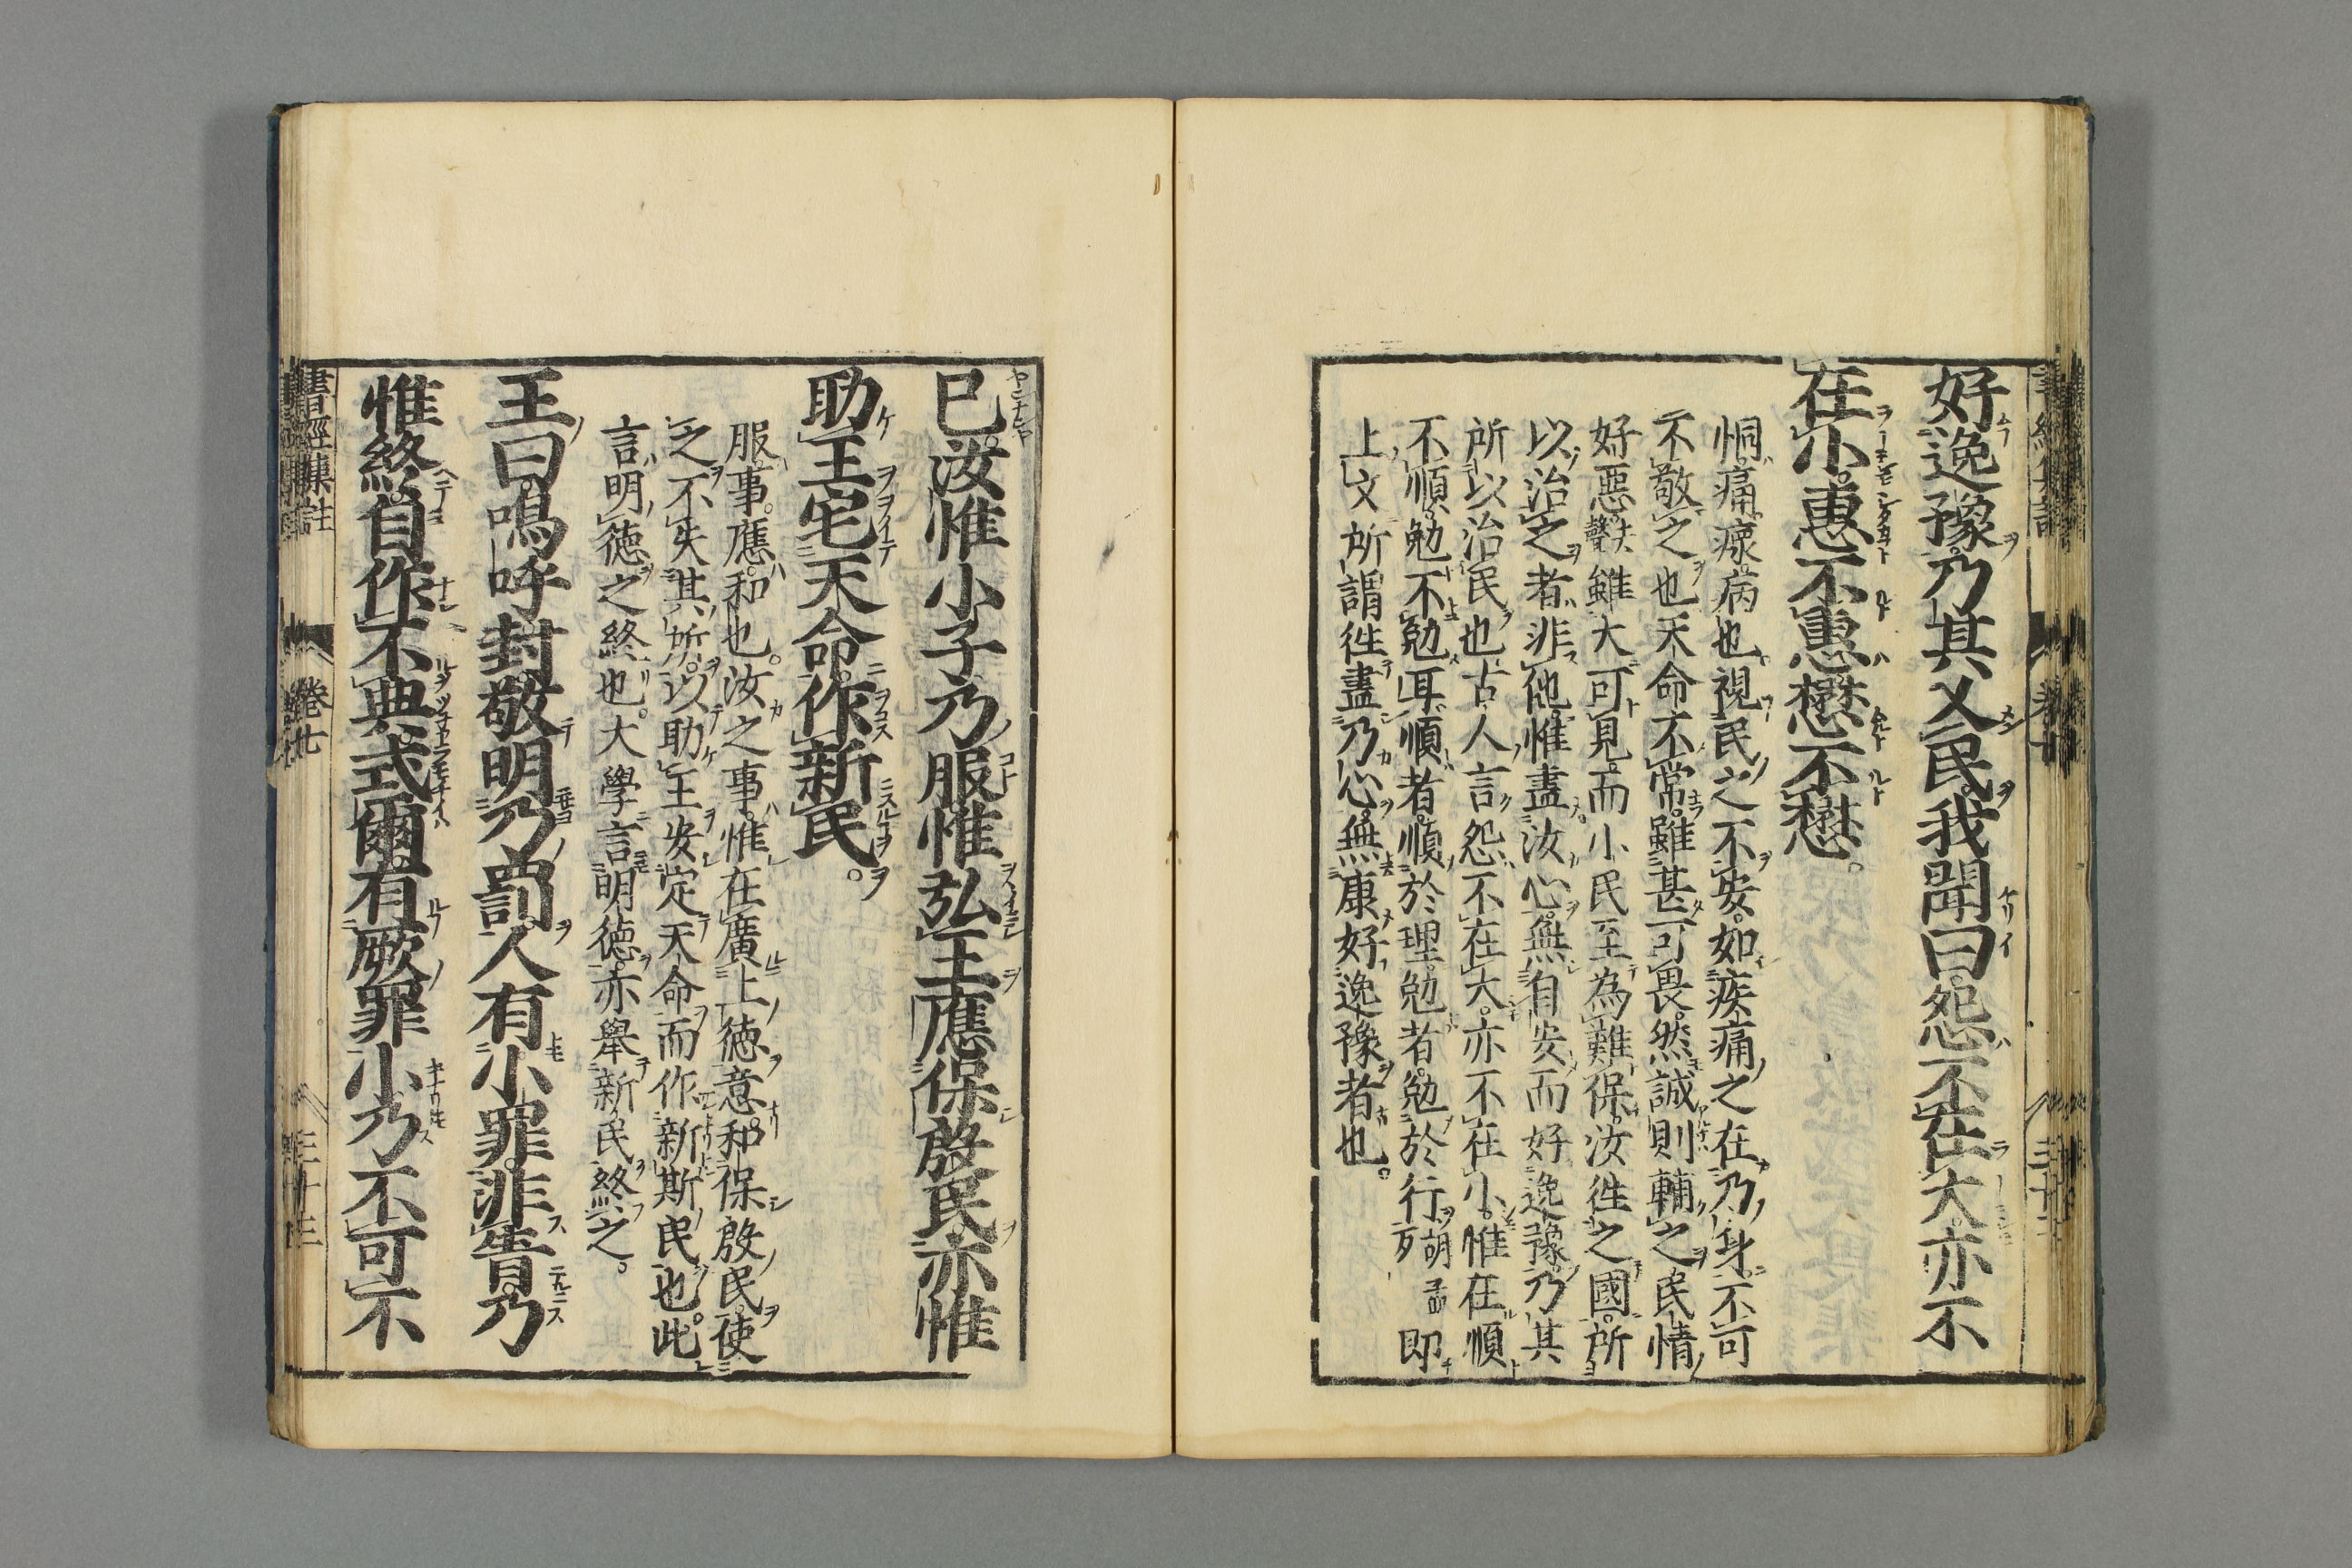 好逸豫乃其乂民我聞曰怨不在大亦不
在小惠不惠懋不懋。
恫痛瘝病也視民之不安如疾痛之在乃身不可
不敬之也天命不常雖甚可畏然誠則輔之民情
好惡雖大可見而小民至為難保汝徃之國所
以治之者非他惟盡汝心無自安而好逸豫乃其
所以治民也古人言怨不在大亦不在小惟在順
不順勉不勉耳順者順於理勉者勉於行 即
上文所謂徃盡乃心無康好逸豫者也。
已汝惟小子乃服惟弘王應保殷民亦惟
助王宅天命作新民。
服事應和也。汝之事惟在廣上徳意和保殷民使
之不失其所以助王安定天命而作新斯民也。此
言明徳之終也。大學言明徳亦舉新民終之。
王曰嗚呼封敬明乃罰人有小罪非眚乃
惟終自作不典式爾有厥罪小乃不可不
書經集註 卷七 三十三